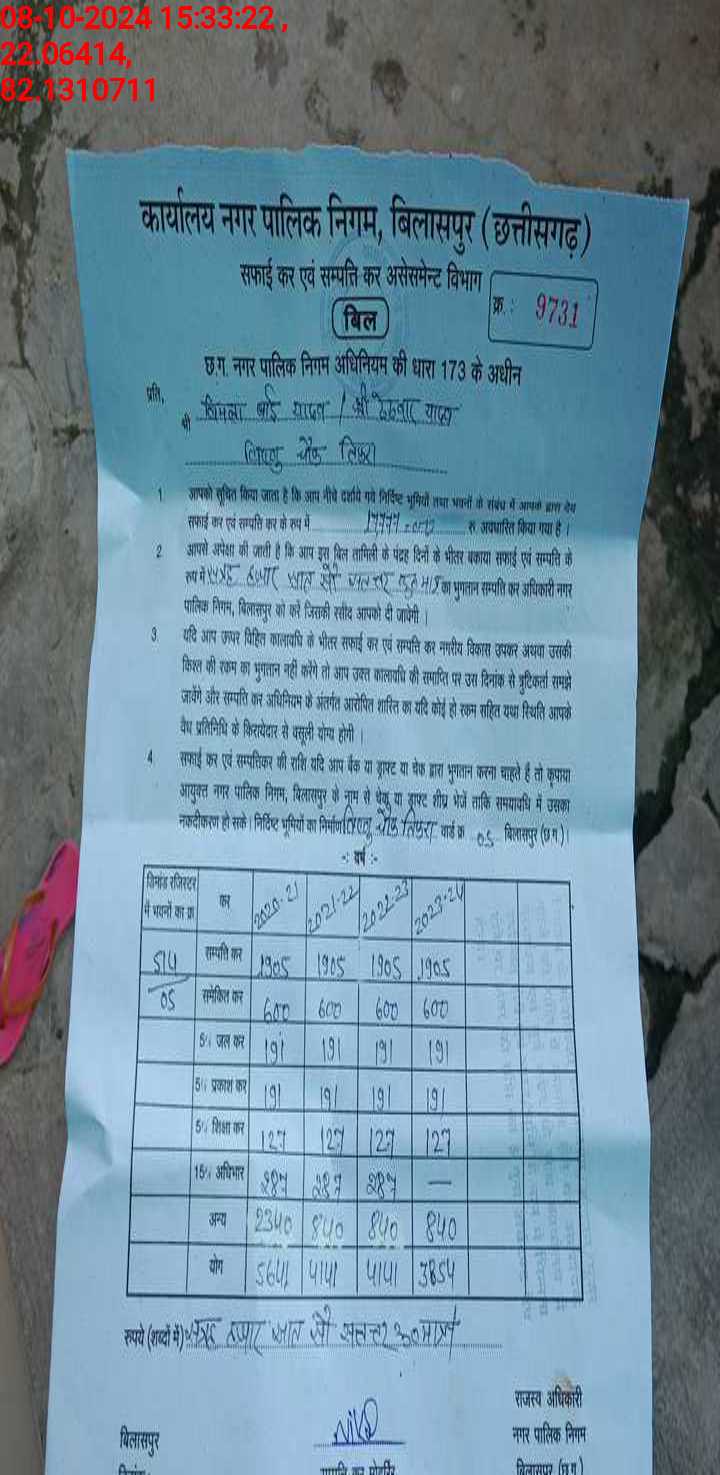 08-10-2024 15:33:22 ,
22.06414,
82.1310711
कार्यालय नगर पालिक निगम, बिलासपुर (छत्तीसगढ़)
सफाई कर एवं सम्पत्ति कर असेसमेन्ट विभाग
क्र. : 9731
बिल
छ.ग. नगर पालिक निगम अधिनियम की धारा 173 के अधीन
प्रति,
श्री विमला बाई यादव / श्री यादव
चौक तिफरा
1. आपको सूचित किया जाता है कि आप नीचे दर्शाये गये निर्दिष्ट भूमियों तथा भवनों के संबंध में आपके द्वारा देय
सफाई कर एवं सम्पत्ति कर के रूप में 17777=00 रु अवधारित किया गया है ।
2 आपसे अपेक्षा की जाती है कि आप इस बिल तामिली के पंद्रह दिनों के भीतर बकाया सफाई एवं सम्पत्ति के
रूप में सत्रह हजार सात सौ सतत्तर रु मात्र का भुगतान सम्पत्ति कर अधिकारी नगर
पालिक निगम, बिलासपुर को करें जिसकी रसीद आपको दी जावेगी ।
3. यदि आप ऊपर विहित कालावधि के भीतर सफाई कर एवं सम्पत्ति कर नगरीय विकास उपकर अथवा उसकी
किश्त की रकम का भुगतान नहीं करेंगे तो आप उक्त कालावधि की समाप्ति पर उस दिनांक से त्रुटिकर्ता समझे
जावेंगे और सम्पत्ति कर अधिनियम के अंतर्गत आरोपित शास्ति का यदि कोई हो रकम सहित यथा स्थिति आपके
वैध प्रतिनिधि के किरायेदार से वसूली योग्य होगी ।
4. सफाई कर एवं सम्पत्तिकर की राशि यदि आप बैंक या ड्राफ्ट या चेक द्वारा भुगतान करना चाहते है तो कृपया
आयुक्त नगर पालिक निगम, बिलासपुर के नाम से चेक या ड्राफ्ट शीघ्र भेजें ताकि समयावधि में उसका
नकदीकरण हो सके। निर्दिष्ट भूमियों का निर्माण चौक तिफरा वार्ड क्र 05 बिलासपुर (छ.ग.)।
-: वर्ष :-
डिमांड रजिस्टर में भवनों का क्र. कर 2020-21 2021-22 2022-23 2023-24
514 सम्पत्ति कर 1905 1905 1905 1905
05 समेकित कर 600 600 600 600
5% जल कर 191 191 191 191
5% प्रकाश कर 191 191 191 191
5% शिक्षा कर 127 127 127 127
15% अधिभार 287 287 287 —
अन्य 2340 840 840 840
योग 5641 4141 4141 3854
रुपये (शब्दों में) सत्रह हजार सात सौ सतत्तर रु० मात्र
राजस्व अधिकारी
बिलासपुर
नगर पालिक निगम
बिलासपुर (छ.ग.)